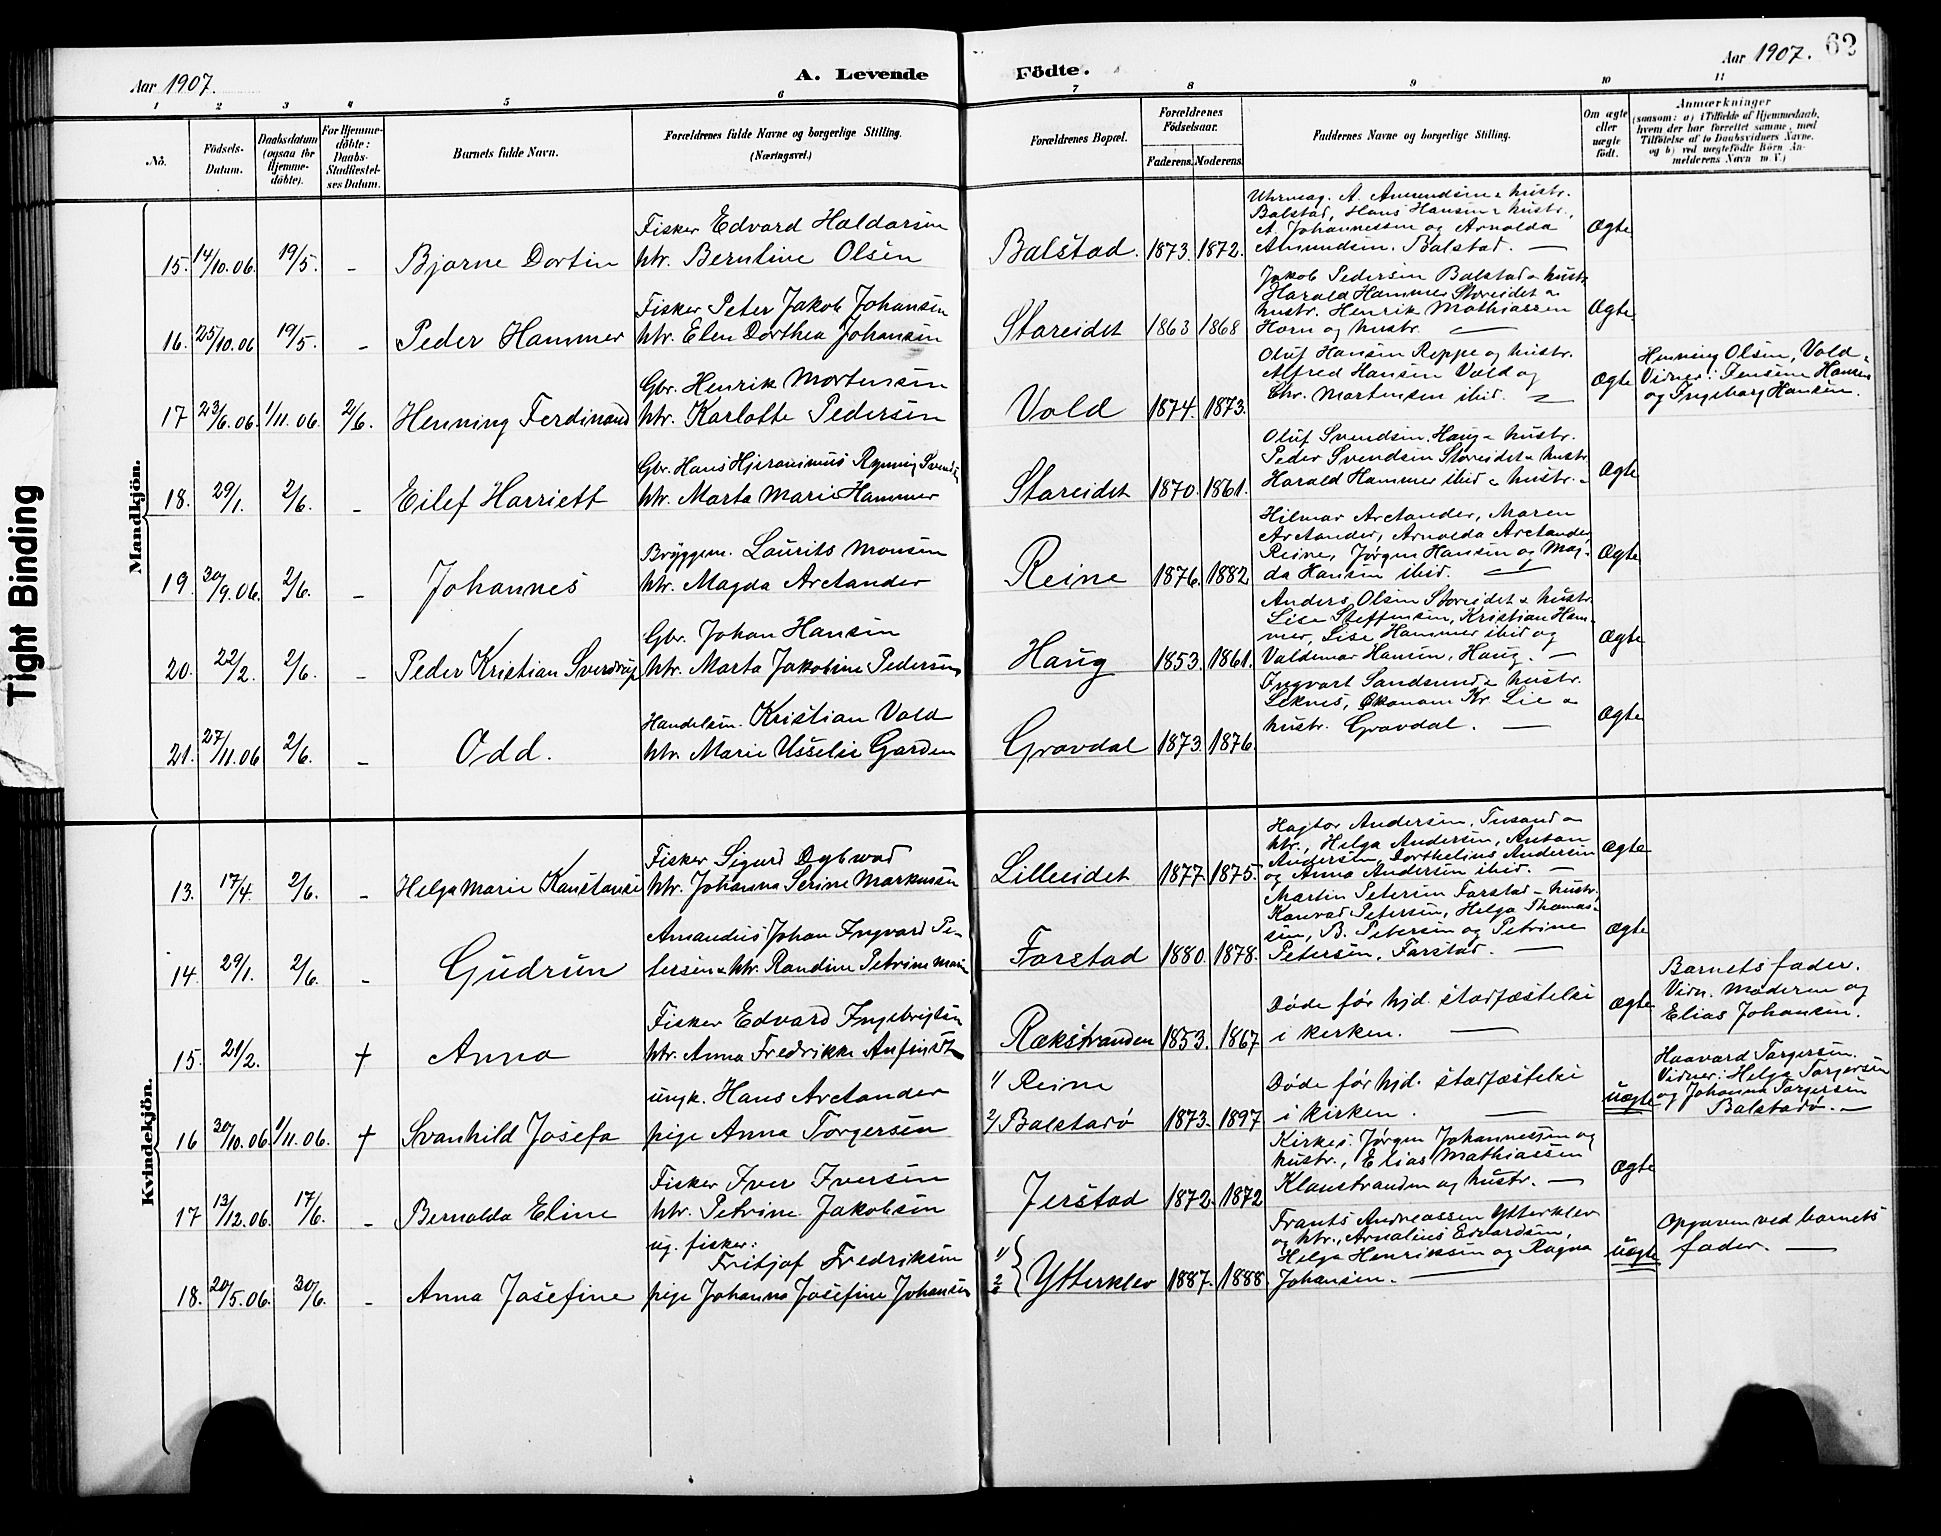 Aar 1907. A. Levende Födte. Aar 1907. 62
Tight Binding
1 2 3 4 5 6 7 8 9 10 11
No.
Födsels-
Datum.
Daabsdatum
(ogsaa for
Hjemme-
döbte).
For Hjemme-
döbte:
Daabs-
Stadfæstel-
ses Datum.
Barnets fulde Navn.
Forældrenes fulde Navne og borgerlige Stilling.
(Næringsvei.)
Forældrenes Bopæl.
Forældrenes
Födselsaar.
Faderens. Moderens.
Faddernes Navne og borgerlige Stilling.
Om ægte
eller
uægte
födt.
Anmærkninger
(saasom: a) i Tilfælde af Hjemmedaab,
hvem der har forrettet samme, med
Tilföielse af to Daabsvidners Navne,
og b) ved uægtefödte Börn An-
melderens Navn m. V.)
Mandkjön.
15. 14/10.06. 19/5. - Bjarne Dortin
Fisker Edvard Haldorsen
htr. Berntine Olsen
Balstad. 1873. 1872.
A. Amundsen & hustr.
Balstad, Hans Hansen & hustr.,
A. Johannessen og Arnolda
Amundsen, Balstad. —
Ægte
16. 25/10.06 19/5. - Peder Hammer
Fisker Peter Jakob Johansen
htr. Elen Dorthea Johansen
Storeidet 1863 1868
Jakob Pedersen Balstad & hustr.
Harald Hammer Storeidet &
hustr. Henrik Mathiassen
Horn og hustr. —
Ægte
17 23/6.06. 1/11.06 2/6. Henning Ferdinand
Gbr. Henrik Mortensen
htr. Karlotte Pedersen
Vold 1874. 1873.
Oluf Hansen Reppe og hustr.
Alfred Hansen Vold og
Chr. Martensen ibid. —
Ægte
Henning Olsen, Vold -
Vidner: Jensine Hansen
og Ingeborg Hansen.
18. 29/1. 2/6. - Eilef Harriett
Gbr. Hans Hjeronimus Rynning Svends
htr. Marta Marie Hammer
Storeidet 1870. 1861.
Oluf Svendsen, Haug & hustr.
Peder Svendsen Storeidet & hustr.
Harald Hammer ibid & hustr. -
Ægte
19. 30/9.06. 2/6. - Johannes
Bryggem. Laurits Monsen
htr. Magda Arctander
Reine 1876. 1882
Hilmar Arctander, Maren
Arctander, Arnolda Arctander,
Reine, Jørgen Hansen og Mag-
da Hansen ibid. —
Ægte
20. 22/2. 2/6. - Peder Kristian Sverdrup
Gbr. Johan Hansen
htr. Marta Jakobine Pedersen
Haug 1853. 1861.
Anders Olsen Storeidet & hustr.
Lise Steffensen, Kristian Ham-
mer, Lise Hammer ibid og
Valdemar Hansen, Haug. —
Ægte
21. 27/11.06 2/6. - Odd.
Handelsm. Kristian Vold
htr. Marie Garden
Gravdal 1873. 1876.
Ingvart Sandsund & hustr.
Leknes, Økonom Kr. Lie &
hustr. Gravdal. —
Ægte
Kvindekjön.
13. 17/4. 2/6. - Helga Marie Konstanse
Fisker Sigurd Dybwad
htr. Johanna Serine Markussen
Lilleeidet 1877 1875.
Hagtor Andersen, &
htr., Helga Andersen, Anton
Andersen, Dorthelius Andersen
og Anna Andersen ibid. —
Ægte
14. 29/1. 2/6. - Gudrun
Amandus Johan Ingvard Pe-
tersen & htr. Randine Petrine Marie
Farstad 1880. 1878.
Martin Petersen Farstad - hustr.
Konrad Petersen, Helga Thomas-
sen, B. Petersen og Petrine
Petersen, Farstad. —
Ægte
15. 21/2. † Anna
Fisker Edvard Ingebrigtsen
htr. Anna Fredrikke
Rækstranden 1853. 1867
Døde før hjd. stadfæstelse
i kerken. —
Ægte
Barnets fader.
Vidn. Moderen og
Elias Johansen.
16 30/10.06. 1/11.06. † Svanhild Josefa
ungk. Hans Arctander
pige Anna Torgersen
1/ Reine
2/ Balstadø 1873. 1897
Døde før hjd. stadfæstelse
i kirken. —
uægte
Haavard Torgersen.
Vidner: Helga Torgersen
og Johanna Torgersen
Balstadø. —
17 13/12.06. 17/6. - Bernolda Eline
Fisker Iver Iversen
htr. Petrine Jakobsen
Jerstad 1872. 1872
Kirkes. Jørgen Johannessen og
hustr., Elias Mathiassen
Klonstranden og hustr. —
Ægte
18. 20/5.06. 30/6. - Anna Josefine
ug. fisker:
Fritjof Fredriksen
pige Johanna Josefine Johansen
1/ 2/ } Ytterklev 1887. 1888
Frants Andreassen Ytterklev
og htr., Arnolius Edvardsen,
Helga Henriksen og Ragna
Johansen. —
uægte
Opgaven ved barnets
fader. —